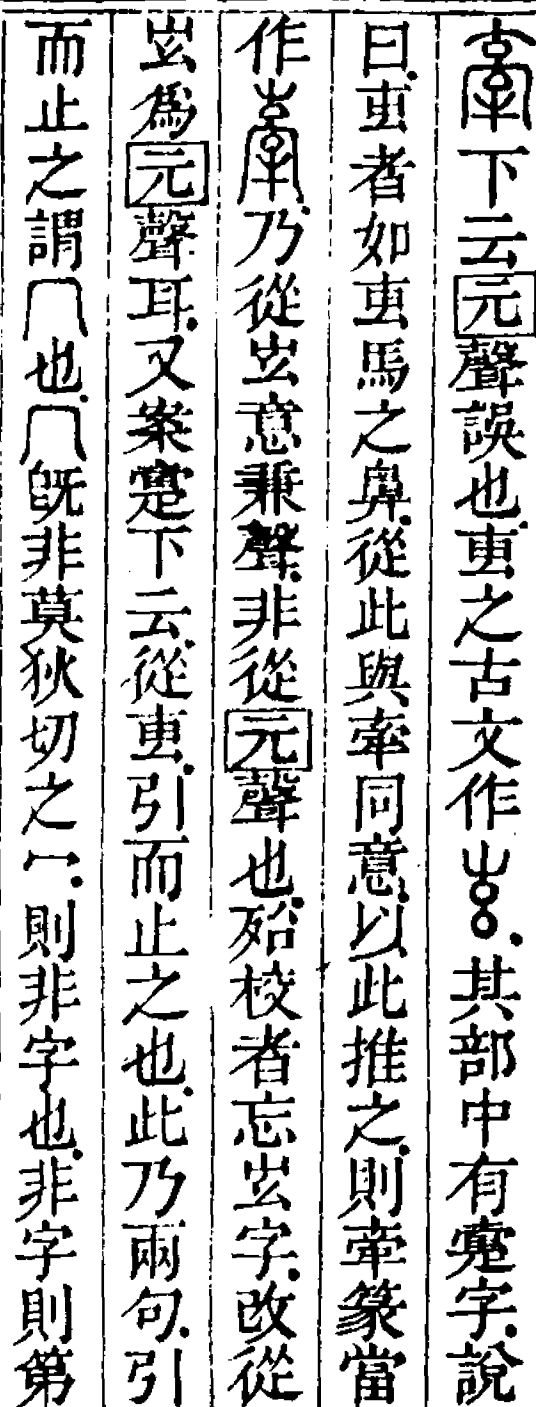 下云元聲誤也.叀之古文作.其部中有疐字.說
曰.叀者如叀馬之鼻.從此與牽同意.以此推之.則牽篆當
作.乃從意兼聲.非從元聲也.殆校者忘字.改從
爲元聲耳.又案疐下云.從叀.引而止之也.此乃兩句.引
而止之謂冂也.冂既非莫狄切之冖.則非字也.非字則第